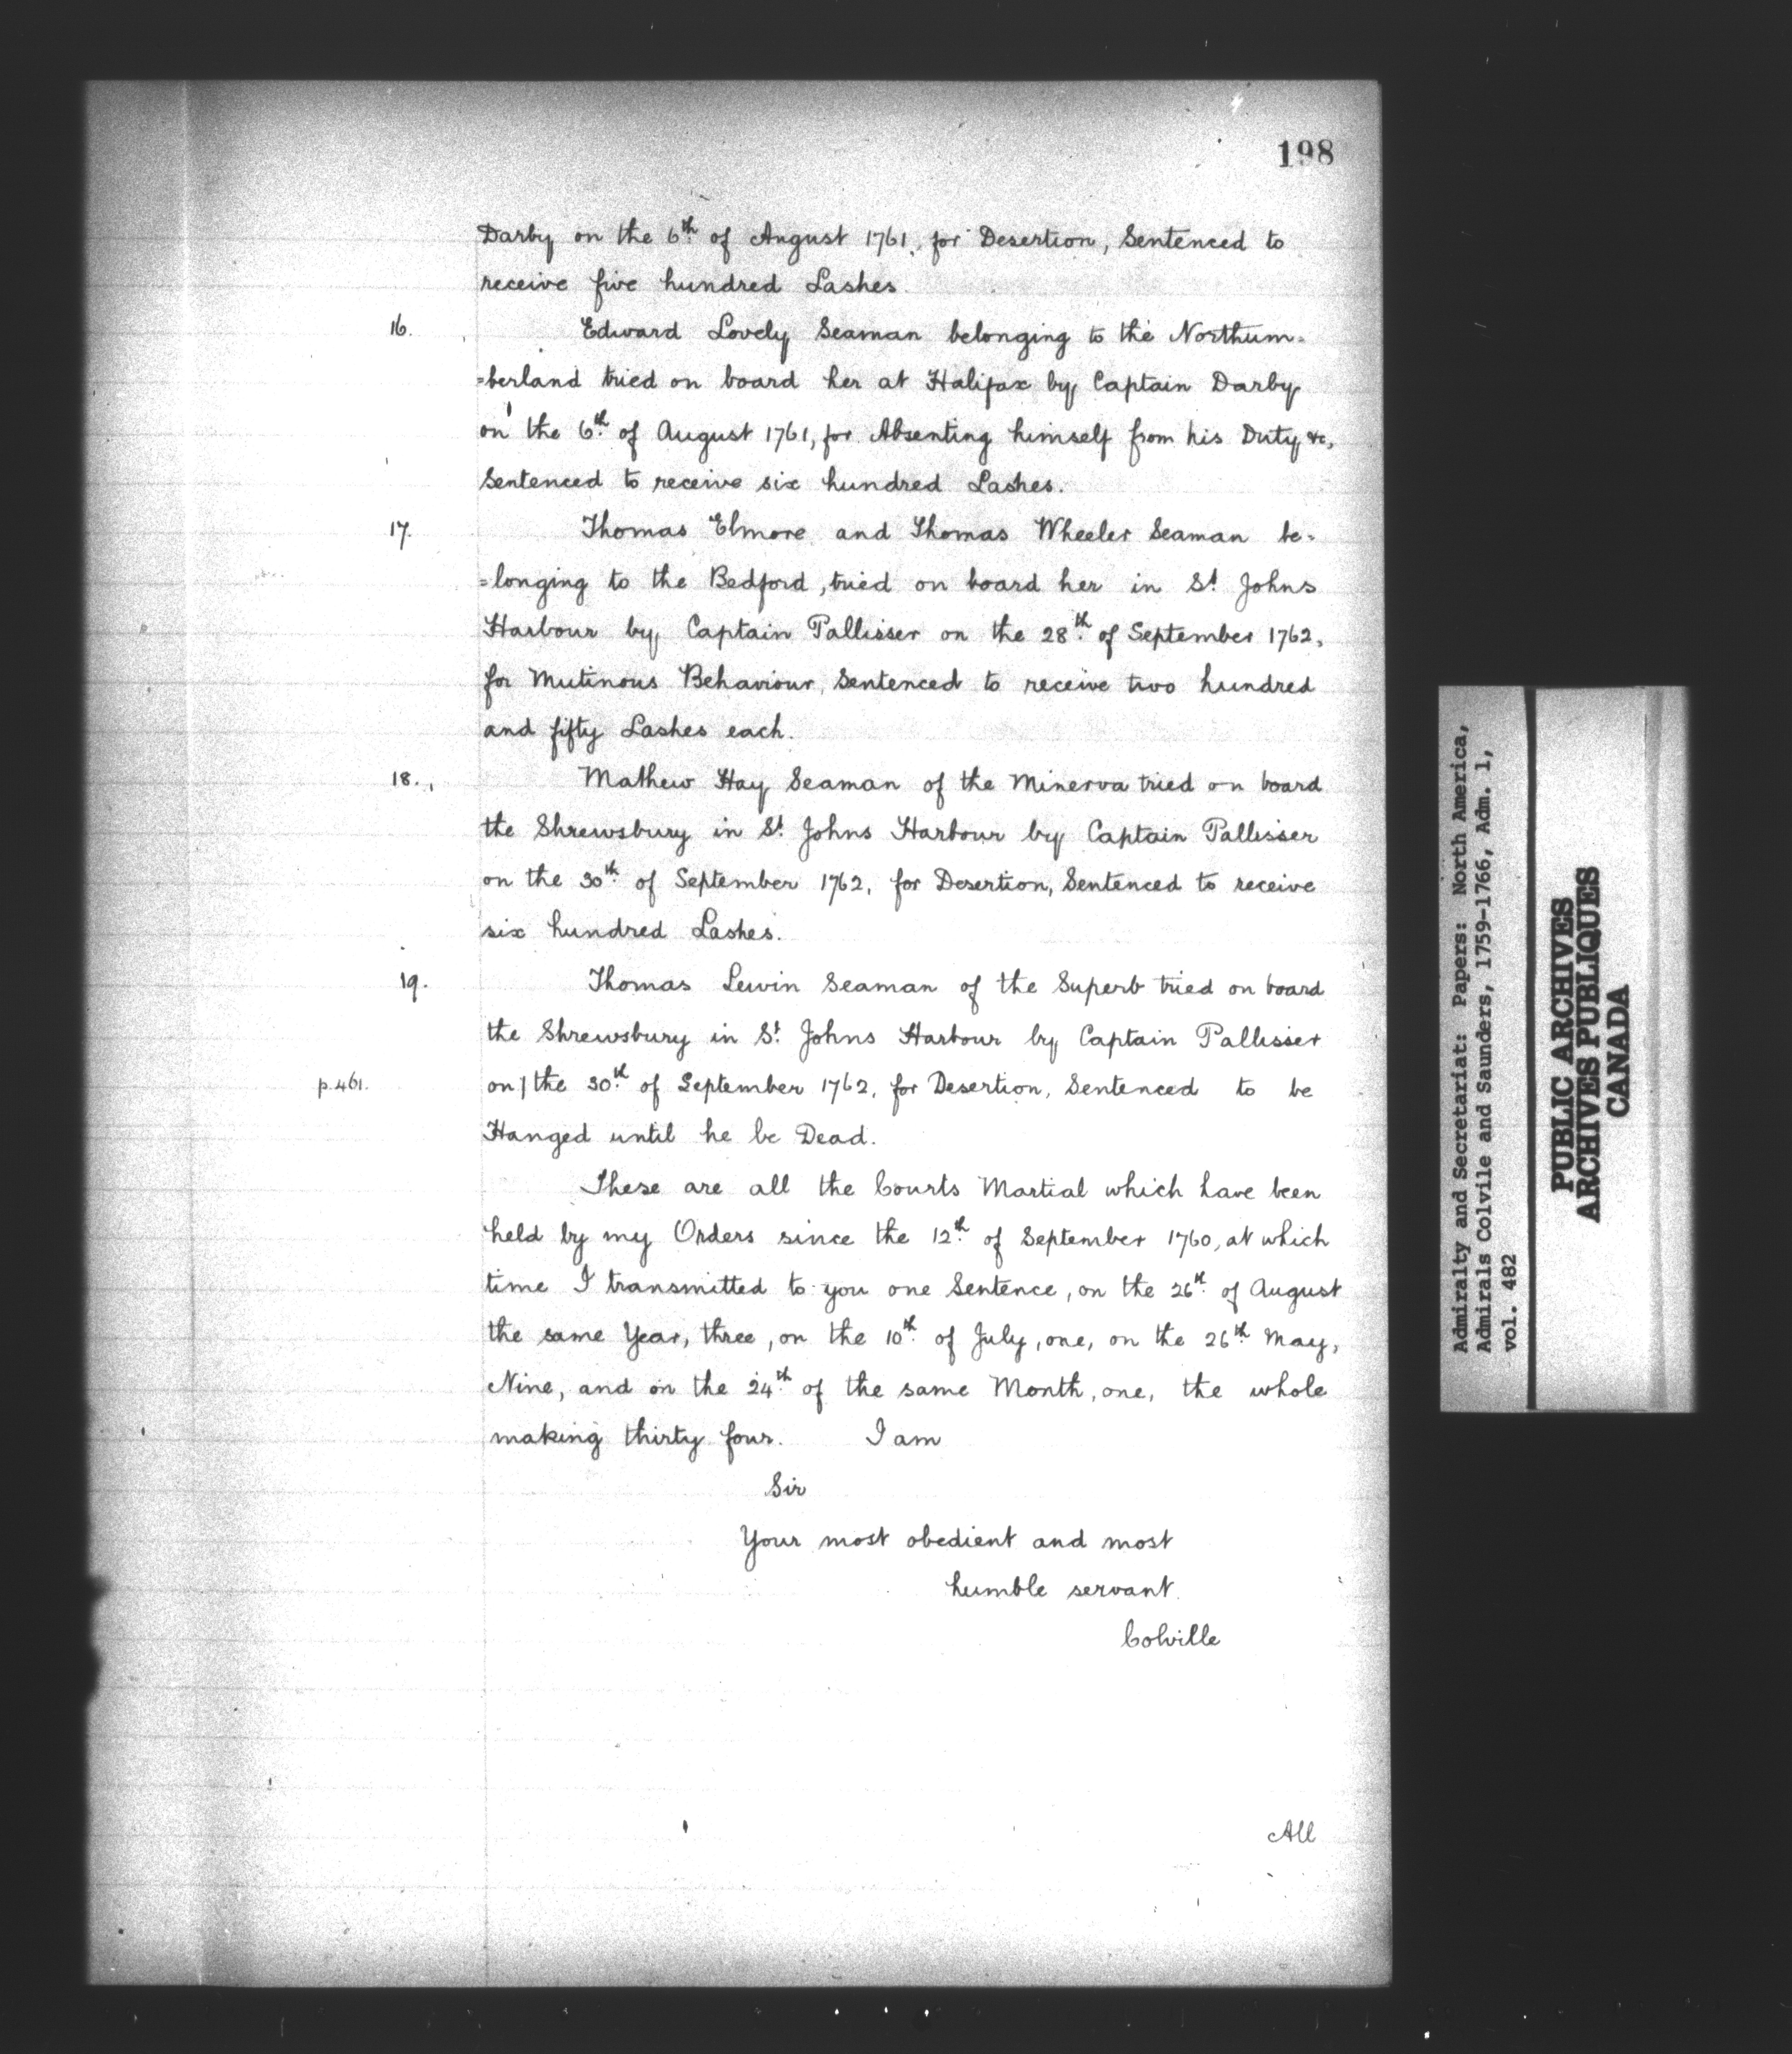 198
Darby on the 6th of August 1761, for Desertion, Sentenced to
receive five hundred Lashes.
16. Edward Lovely Seaman belonging to the Northum=
=berland tried on board her at Halifax by Captain Darby
on the 6th of August 1761, for Absenting himself from his Duty &c,
Sentenced to receive six hundred Lashes.
17. Thomas Elmore and Thomas Wheeler Seaman be=
=longing to the Bedford, tried on board her in St Johns
Harbour by Captain Pallisser on the 28th of September 1762,
for Mutinous Behaviour, Sentenced to receive two hundred
and fifty Lashes each.
18. Mathew Hay Seaman of the Minerva tried on board
the Shrewsbury in St Johns Harbour by Captain Pallisser
on the 30th of September 1762, for Desertion, Sentenced to receive
six hundred Lashes.
19. Thomas Lewin Seaman of the Superb tried on board
the Shrewsbury in St Johns Harbour by Captain Pallisser
p.461. on/the 30th of September 1762, for Desertion, Sentenced to be
Hanged until he be Dead.
These are all the Courts Martial which have been
held by my Orders since the 12th of September 1760, at which
time I transmitted to you one Sentence, on the 26th of August
the same Year, three, on the 10th of July, one, on the 26th May,
Nine, and on the 24th of the same Month, one, the whole
making thirty four. I am
Sir
Your most obedient and most
humble servant.
Colville
All
Admiralty and Secretariat: Papers: North America,
Admirals Colvile and Saunders, 1759-1766, Adm. 1,
vol. 482
PUBLIC ARCHIVES
ARCHIVES PUBLIQUES
CANADA